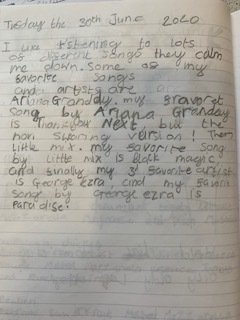 Tusday the 30th June 2020
I like listening to lots
of diferent songs they calm
me down. Some of my
favorite songs
and artists are ar
Ariana Granddy. my fravoret
song by Ariana Granday
is Thank you Next, but the
non Swaring version! Then
little mix. my favorite song
by Little mix is Black magic
and finally my 3 favorite artist
is George Ezra, and my favorite
song by George ezra is
Paradise.